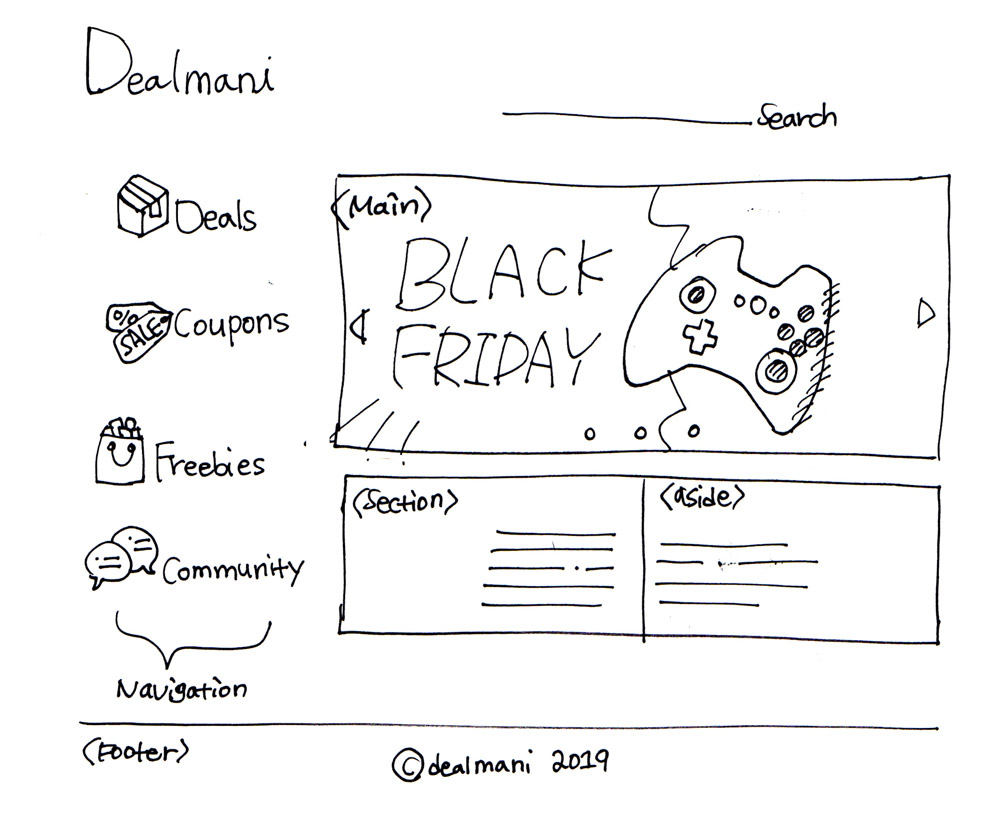 Dealmani
Search
Deals
% SALE Coupons
Freebies
Community
Navigation
<Main>
BLACK
FRIDAY
<Section>
<aside>
<Footer>
©dealmani 2019